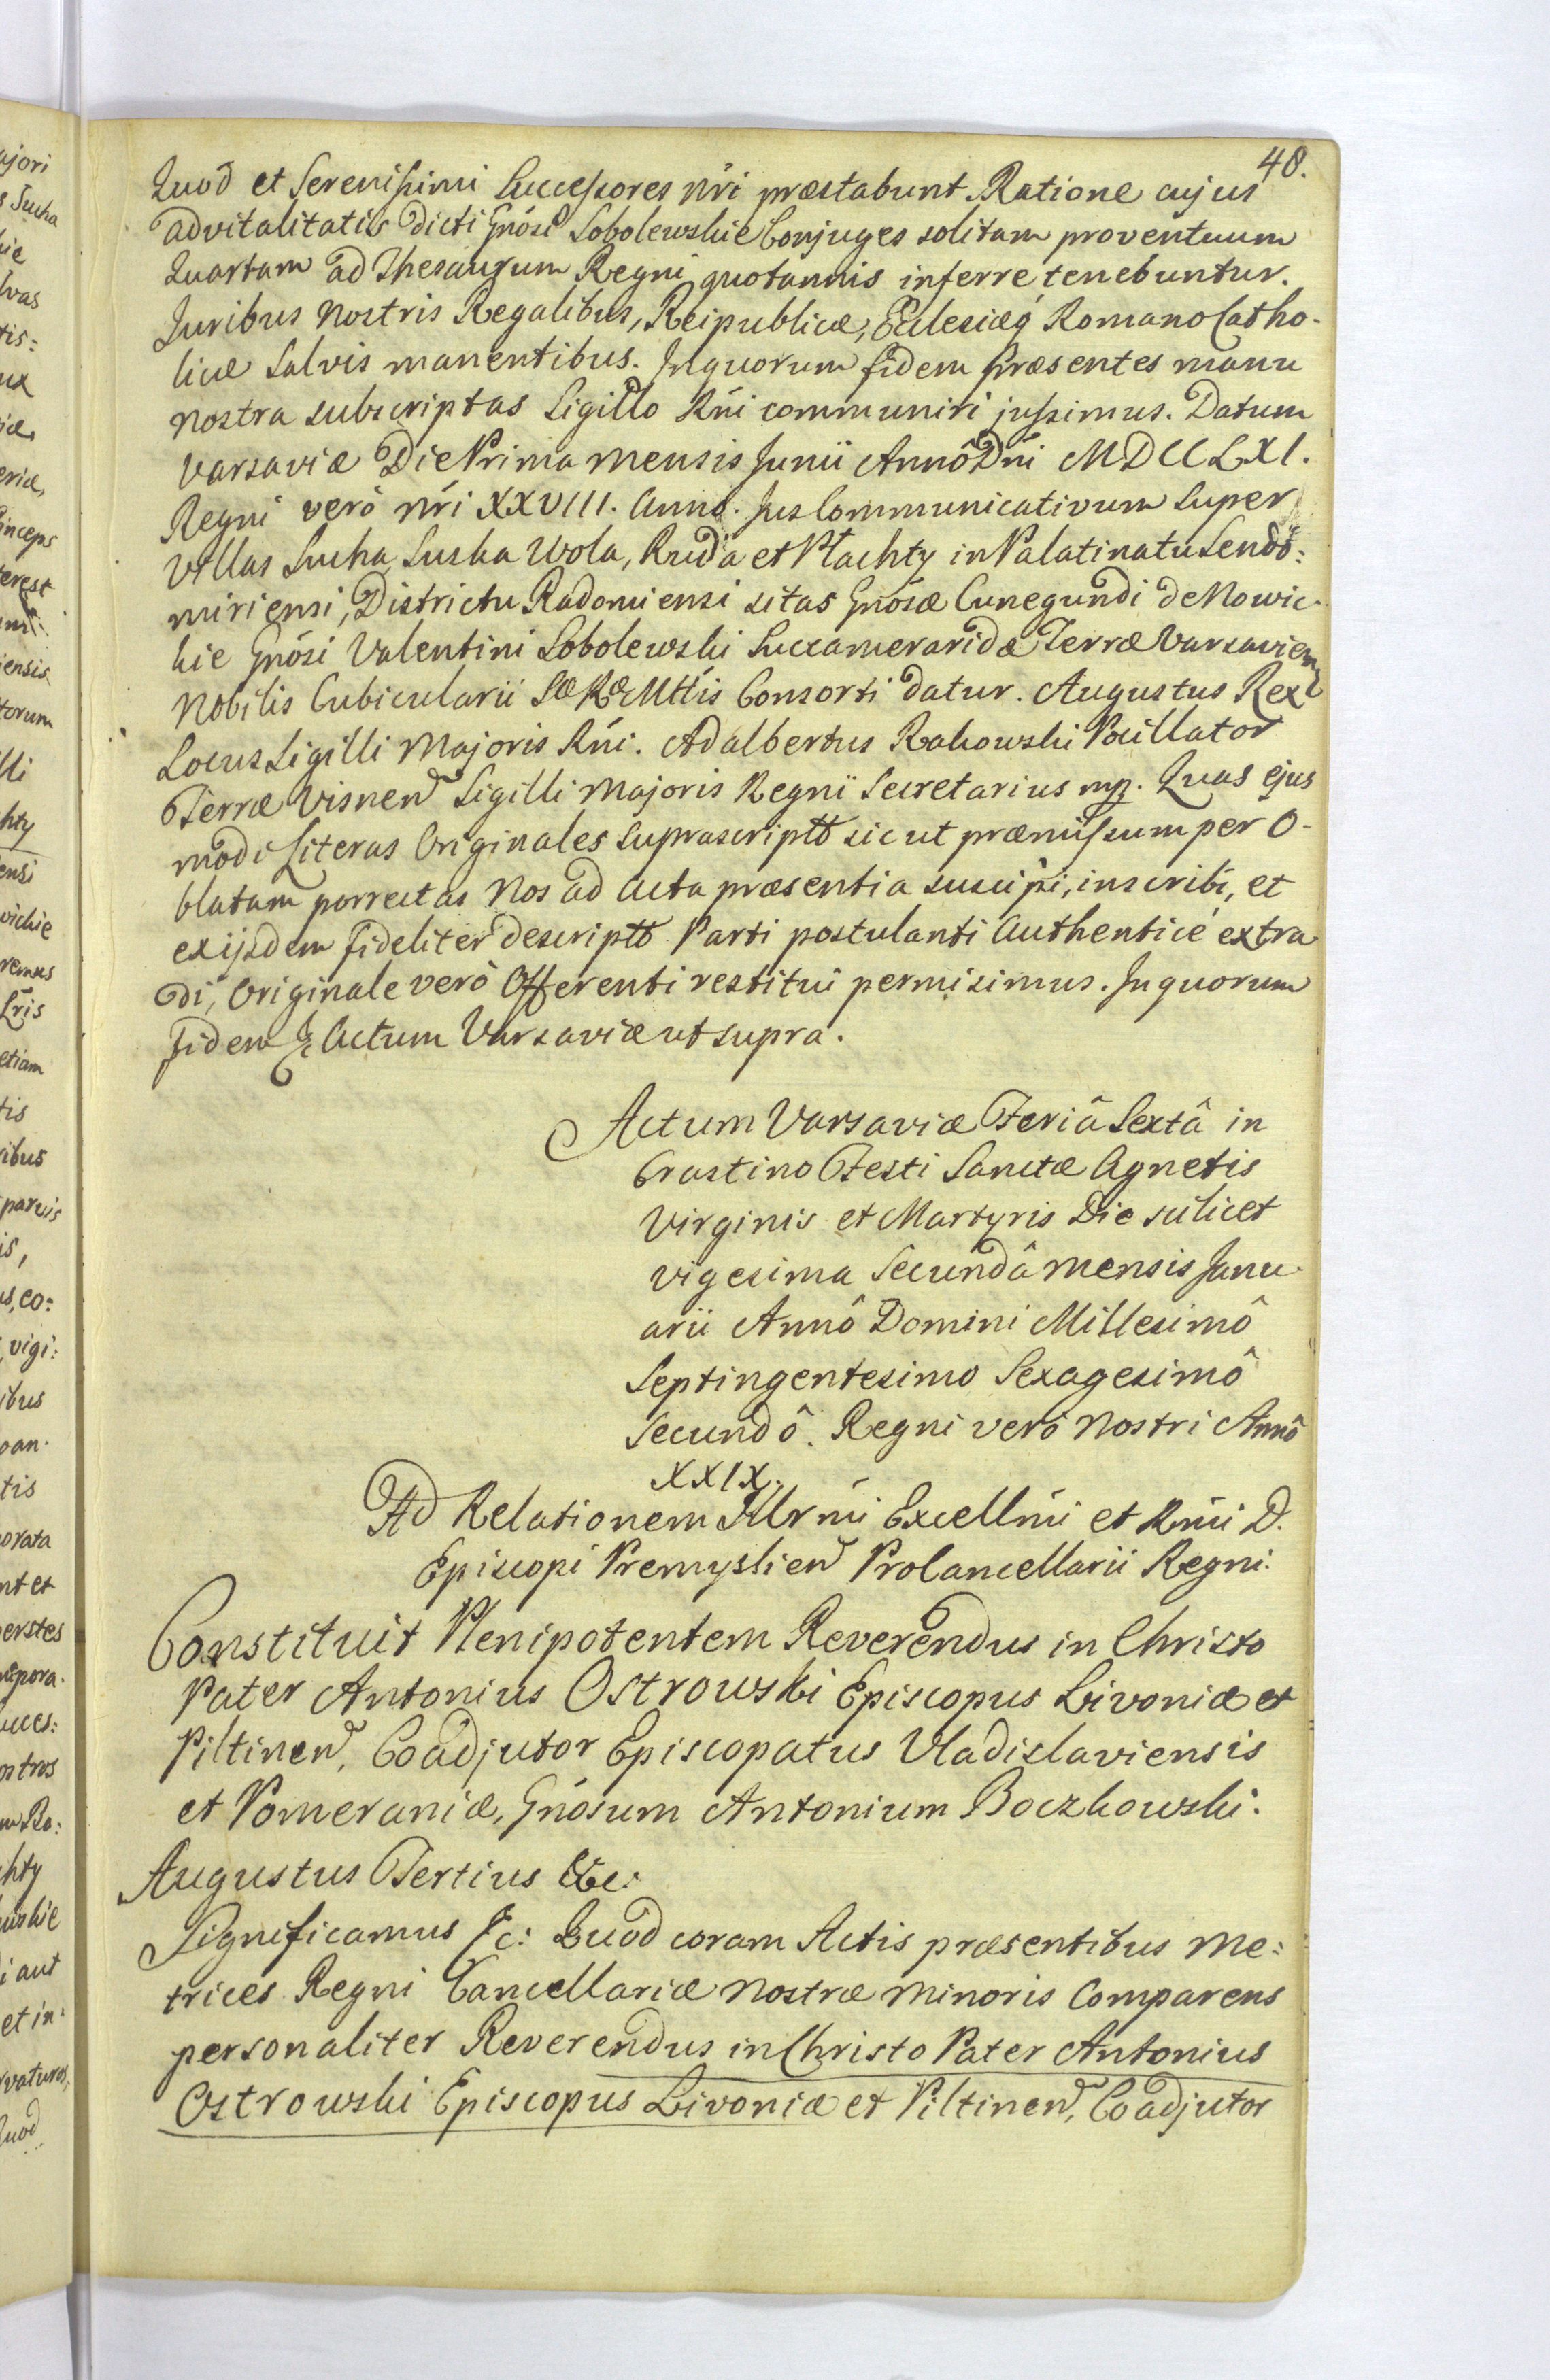 48.
Quod et Serenissimi Successores nŕi præstabunt. Ratione cujus
advitalitatis dicti Gnósi Sobolewskie Conjuges solitam proventuum
Quartam ad Thesaurum Regni quotannis inferre tenebuntur.
Juribus Nostris Regalibus, Reipublicæ, Ecclesiæq́ Romano Catho-
licæ salvis manentibus. In quorum fidem Præsentes manu
nostra subscriptas Sigillo Rńi communiri jussimus. Datum
Varsaviæ Die Prima mensis Junii Annô Dńi MDCCLXI.
Regni verò nŕi XXVIII. Anno. Jus Communicativum super
Villas Sucha, Suska Wola, Ruda et Płachty in Palatinatu Sendo:
miriensi, Districtu Radomiensi sitas Gnósæ Cunegundi de Nowic-
kie Gnósi Valentini Sobolewski Succameraridæ Terræ Varsavien
Nobilis Cubicularii SæRæMttis Consorti datur. Augustus Rex
Locus Sigilli Majoris Rńi. Adalbertus Rakowski Pocillator
Terræ Visnen Sigilli Majoris Regni Secretarius mp. Quas ejus
modi Literas Originales suprascriptt sicut præmissum per O-
blatam porrectas Nos ad Acta præsentia suscipi, inscribi, et
ex ijsdem fideliter descriptt Parti postulanti Authenticè extra
di, Originale verò Offerenti restitui permisimus. In quorum
fidem &c Actum Varsaviæ ut supra.
Actum Varsaviæ Feriâ Sextâ in
Crastino Festi Sanctæ Agnetis
Virginis et Martyris Die scilicet
vigesima Secundâ mensis Janu-
arii Annô Domini Millesimô
Septingentesimo Sexagesimô
Secundô. Regni verò Nostri Annô
XXIX.
Ad Relationem Illrḿi Excellḿi et Rḿi D.
Episcopi Premyslien Procancellarii Regni.
Constituit Plenipotentem Reverendus in Christo
Pater Antonius Ostrowski Episcopus Livoniæ et
Piltinen, Coadjutor Episcopatus Vladislaviensis
et Pomeraniæ, Gnósum Antonium Boczkowski.
Augustus Tertius &c:
Significamus &c: Quod coram Actis præsentibus Me:
trices Regni Cancellariæ Nostræ Minoris Comparens
personaliter Reverendus in Christo Pater Antonius
Ostrowski Episcopus Livoniæ et Piltinen, Coadjutor